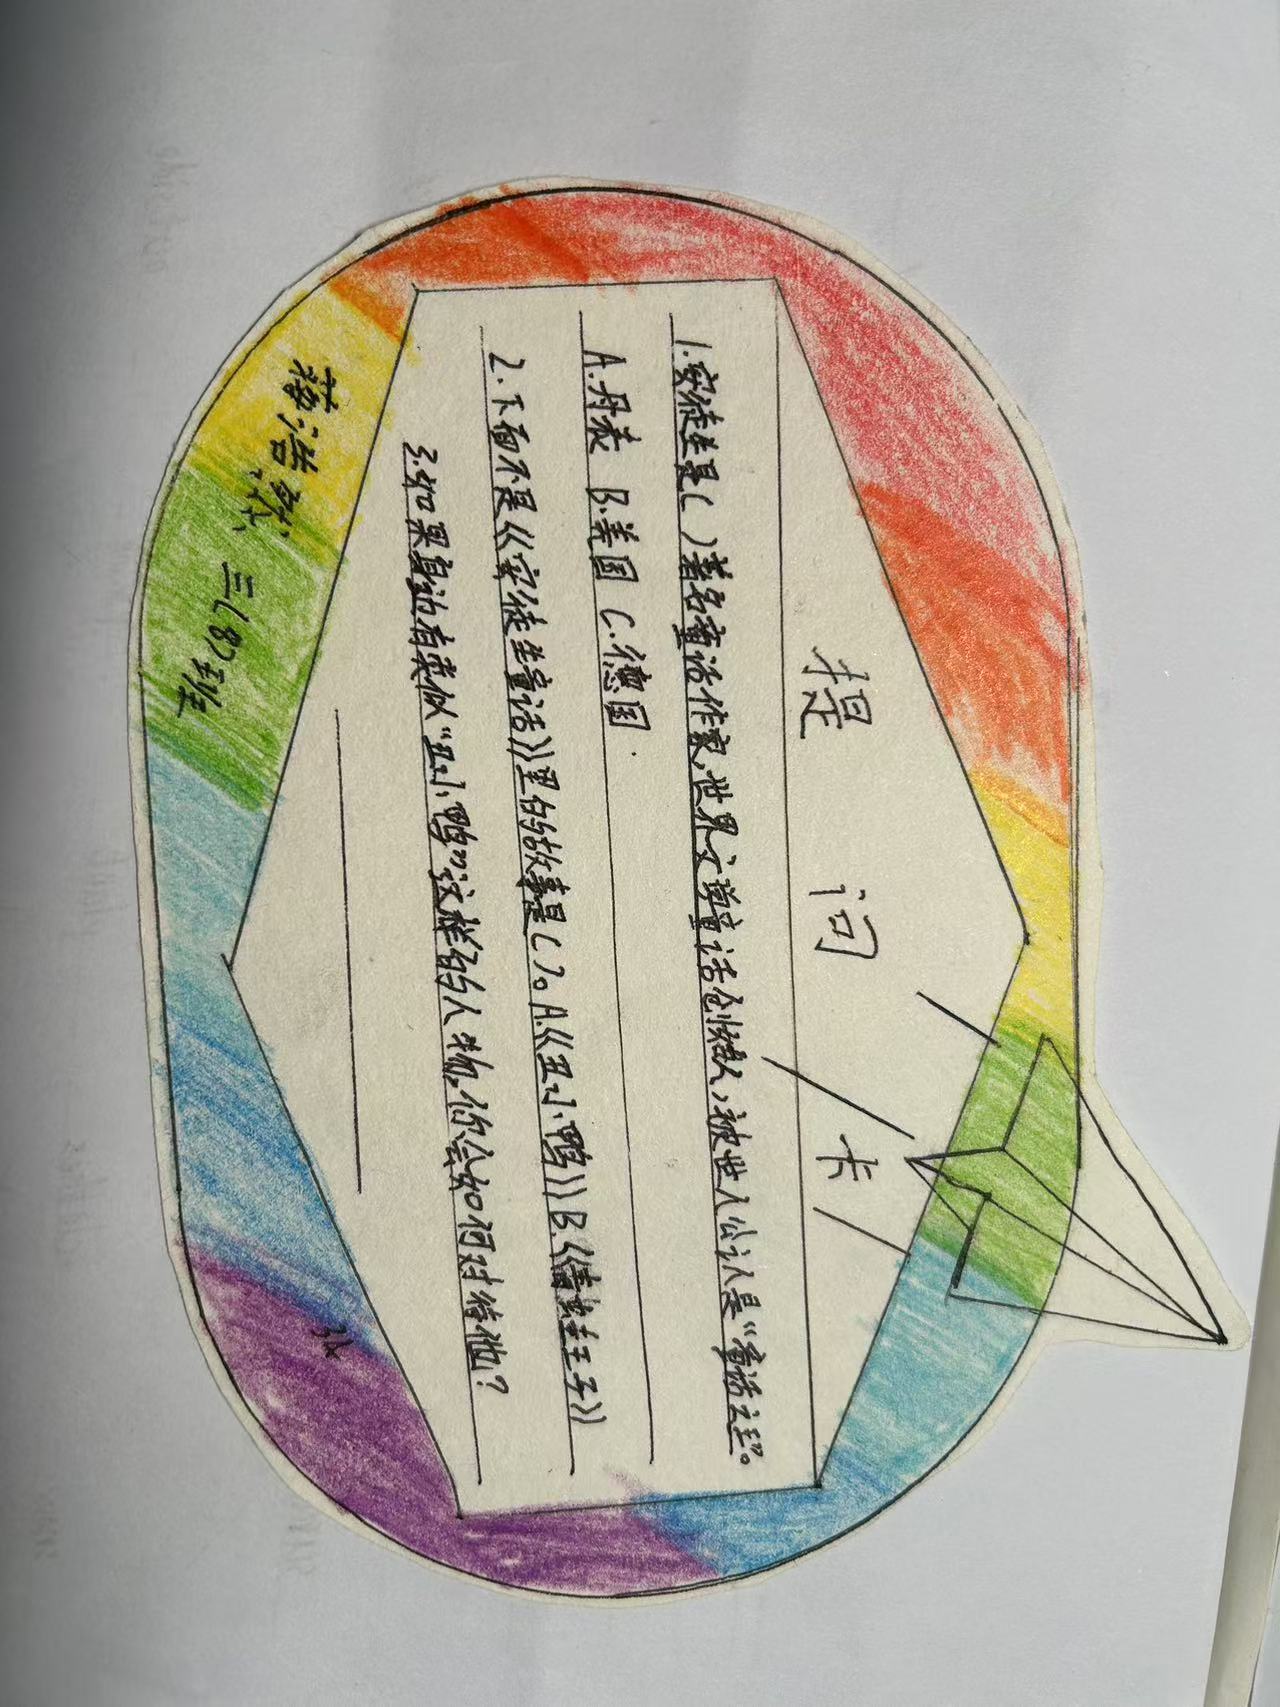 提 问 卡
1.安徒生是( )著名童话作家,世界文坛童话创始人,被世人公认是“童话之王”。
A.丹麦 B.美国 C.德国.
2.下面不是《安徒生童话》里的故事是( )。A.《丑小鸭》B.《青蛙王子》
3.如果身边有类似“丑小鸭”这样的人物,你会如何对待他?
浩 三(8)班